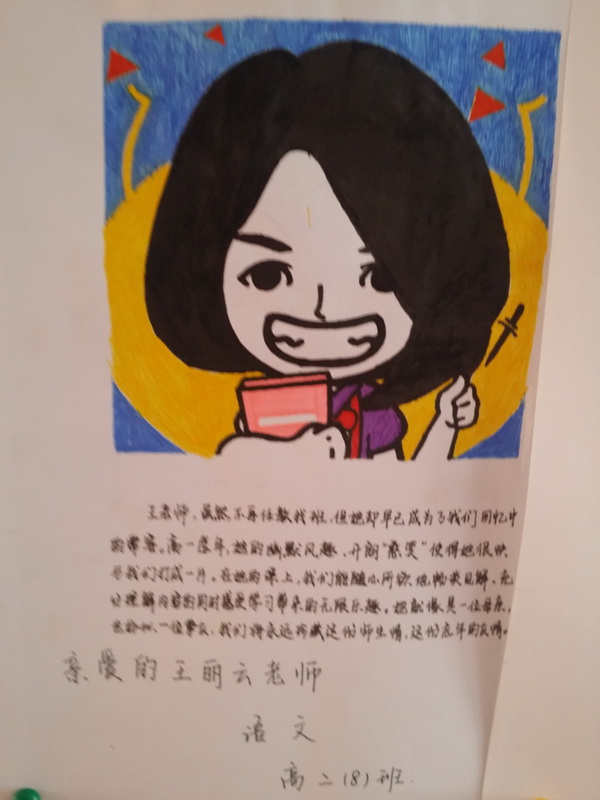 王老师,虽然不再任教我班,但她却早已成为了我们回忆中
的常客。高一层年,她的幽默风趣、开朗"豪笑"使得她很快
与我们打成一片。在她的课上,我们能随心所欲地畅谈见解、充
分理解内容的同时感受学习带来的无限乐趣。她就像是一位母亲,
也恰似一位挚友,我们将永远珍藏这份师生情、这份忘年的友情。
亲爱的王丽云老师
语文
高二(8)班.